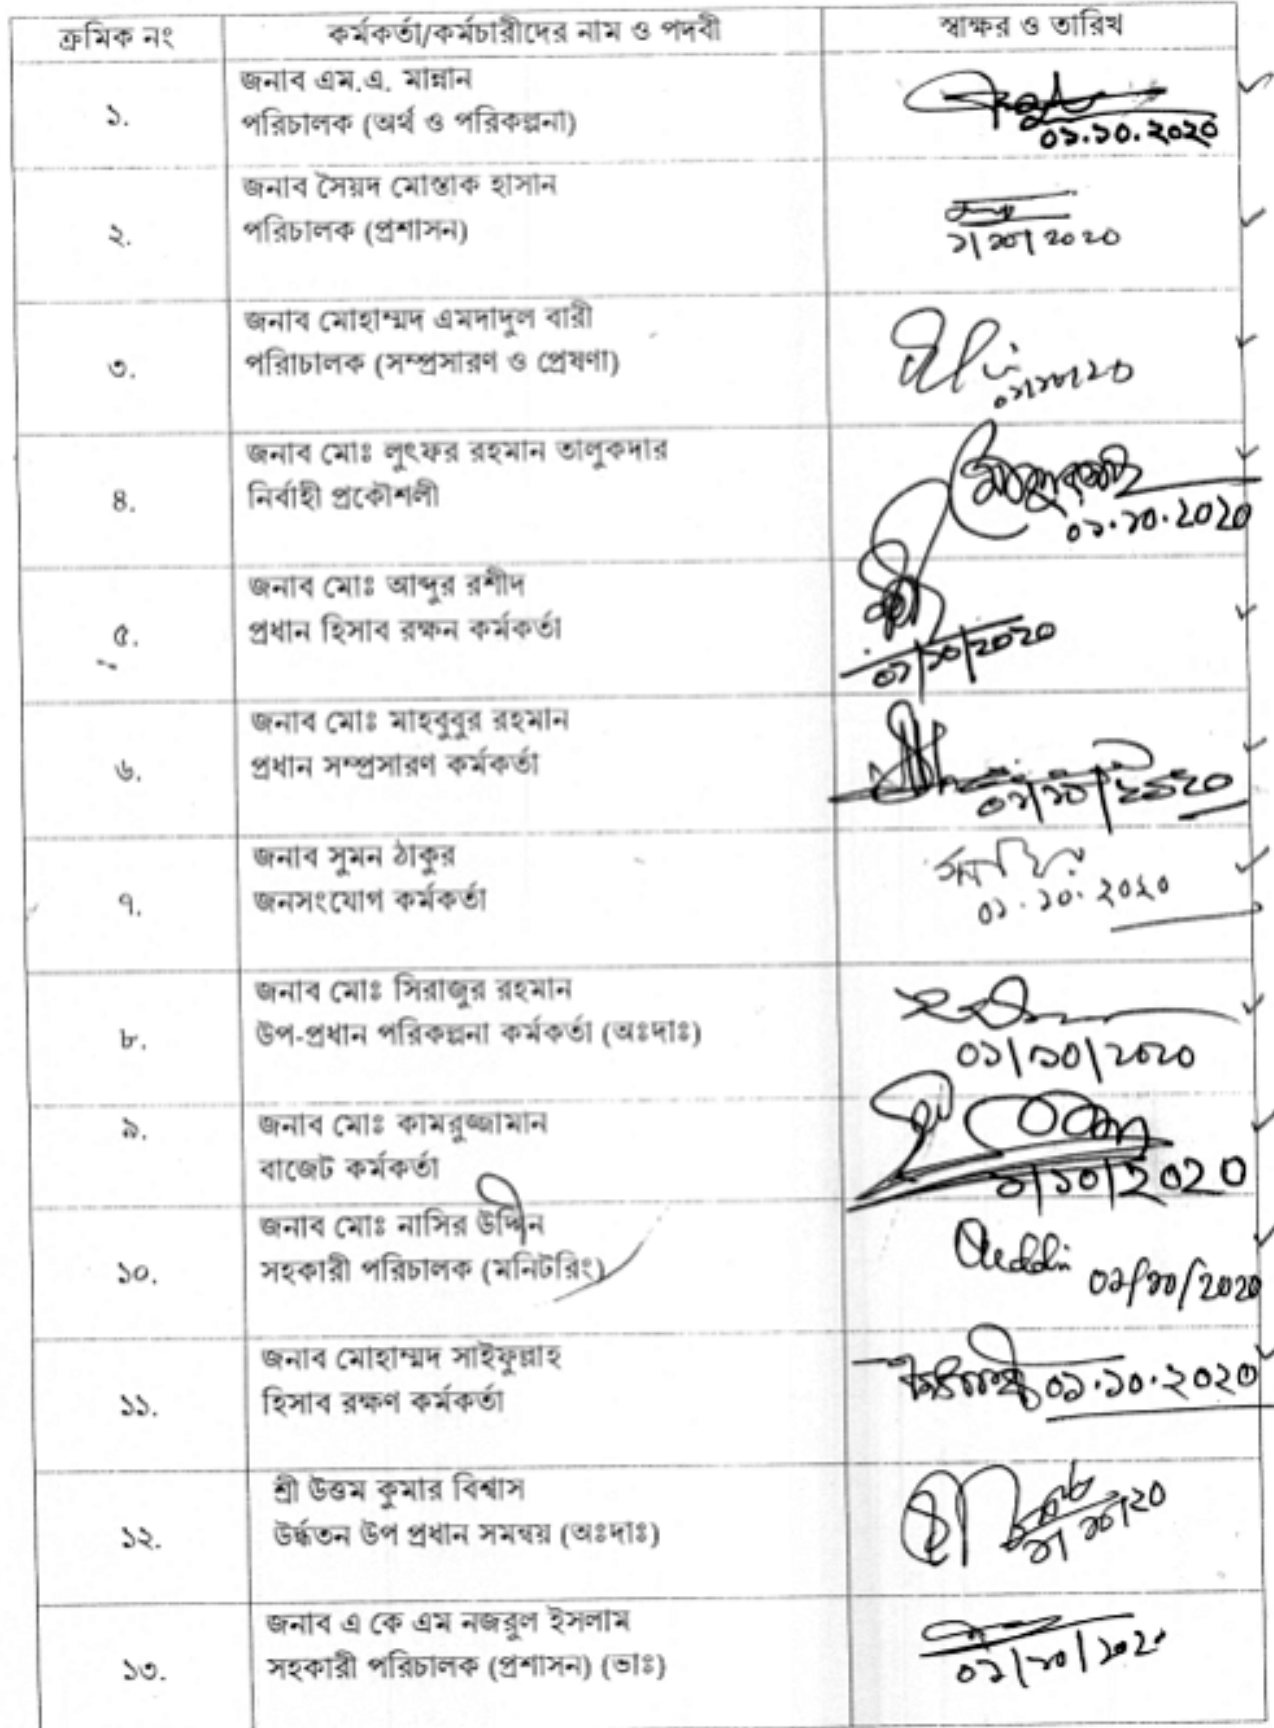 ক্রমিক নং কর্মকর্তা/কর্মচারীদের নাম ও পদবী স্বাক্ষর ও তারিখ
১. জনাব এম.এ. মান্নান
পরিচালক (অর্থ ও পরিকল্পনা)
০১.১০.২০২০
২. জনাব সৈয়দ মোস্তাক হাসান
পরিচালক (প্রশাসন)
১/১০/২০২০
৩. জনাব মোহাম্মদ এমদাদুল বারী
পরিাচালক (সম্প্রসারণ ও প্রেষণা)
০১/১০/২০
৪. জনাব মোঃ লুৎফর রহমান তালুকদার
নির্বাহী প্রকৌশলী
০১.১০.২০২০
৫. জনাব মোঃ আব্দুর রশীদ
প্রধান হিসাব রক্ষন কর্মকর্তা
০১/১০/২০২০
৬. জনাব মোঃ মাহবুবুর রহমান
প্রধান সম্প্রসারণ কর্মকর্তা
০১/১০/২০২০
৭. জনাব সুমন ঠাকুর
জনসংযোগ কর্মকর্তা
০১.১০.২০২০
৮. জনাব মোঃ সিরাজুর রহমান
উপ-প্রধান পরিকল্পনা কর্মকর্তা (অঃদাঃ)
০১/১০/২০২০
৯. জনাব মোঃ কামরুজ্জামান
বাজেট কর্মকর্তা
১/১০/২০২০
১০. জনাব মোঃ নাসির উদ্দিন
সহকারী পরিচালক (মনিটরিং)
০১/১০/২০২০
১১. জনাব মোহাম্মদ সাইফুল্লাহ
হিসাব রক্ষণ কর্মকর্তা
০১.১০.২০২০
১২. শ্রী উত্তম কুমার বিশ্বাস
উর্দ্ধতন উপ প্রধান সমন্বয় (অঃদাঃ)
১/১০/২০
১৩. জনাব এ কে এম নজরুল ইসলাম
সহকারী পরিচালক (প্রশাসন) (ভাঃ)
০১/১০/২০২০